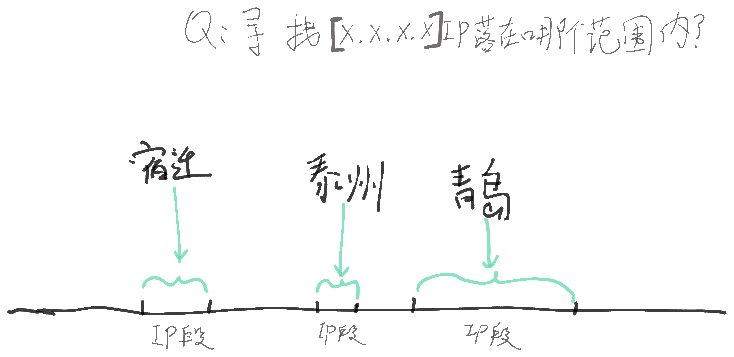 Q: 寻找[X.X.X.X]IP落在哪个范围内?
宿迁 泰州 青岛
IP段 IP段 IP段